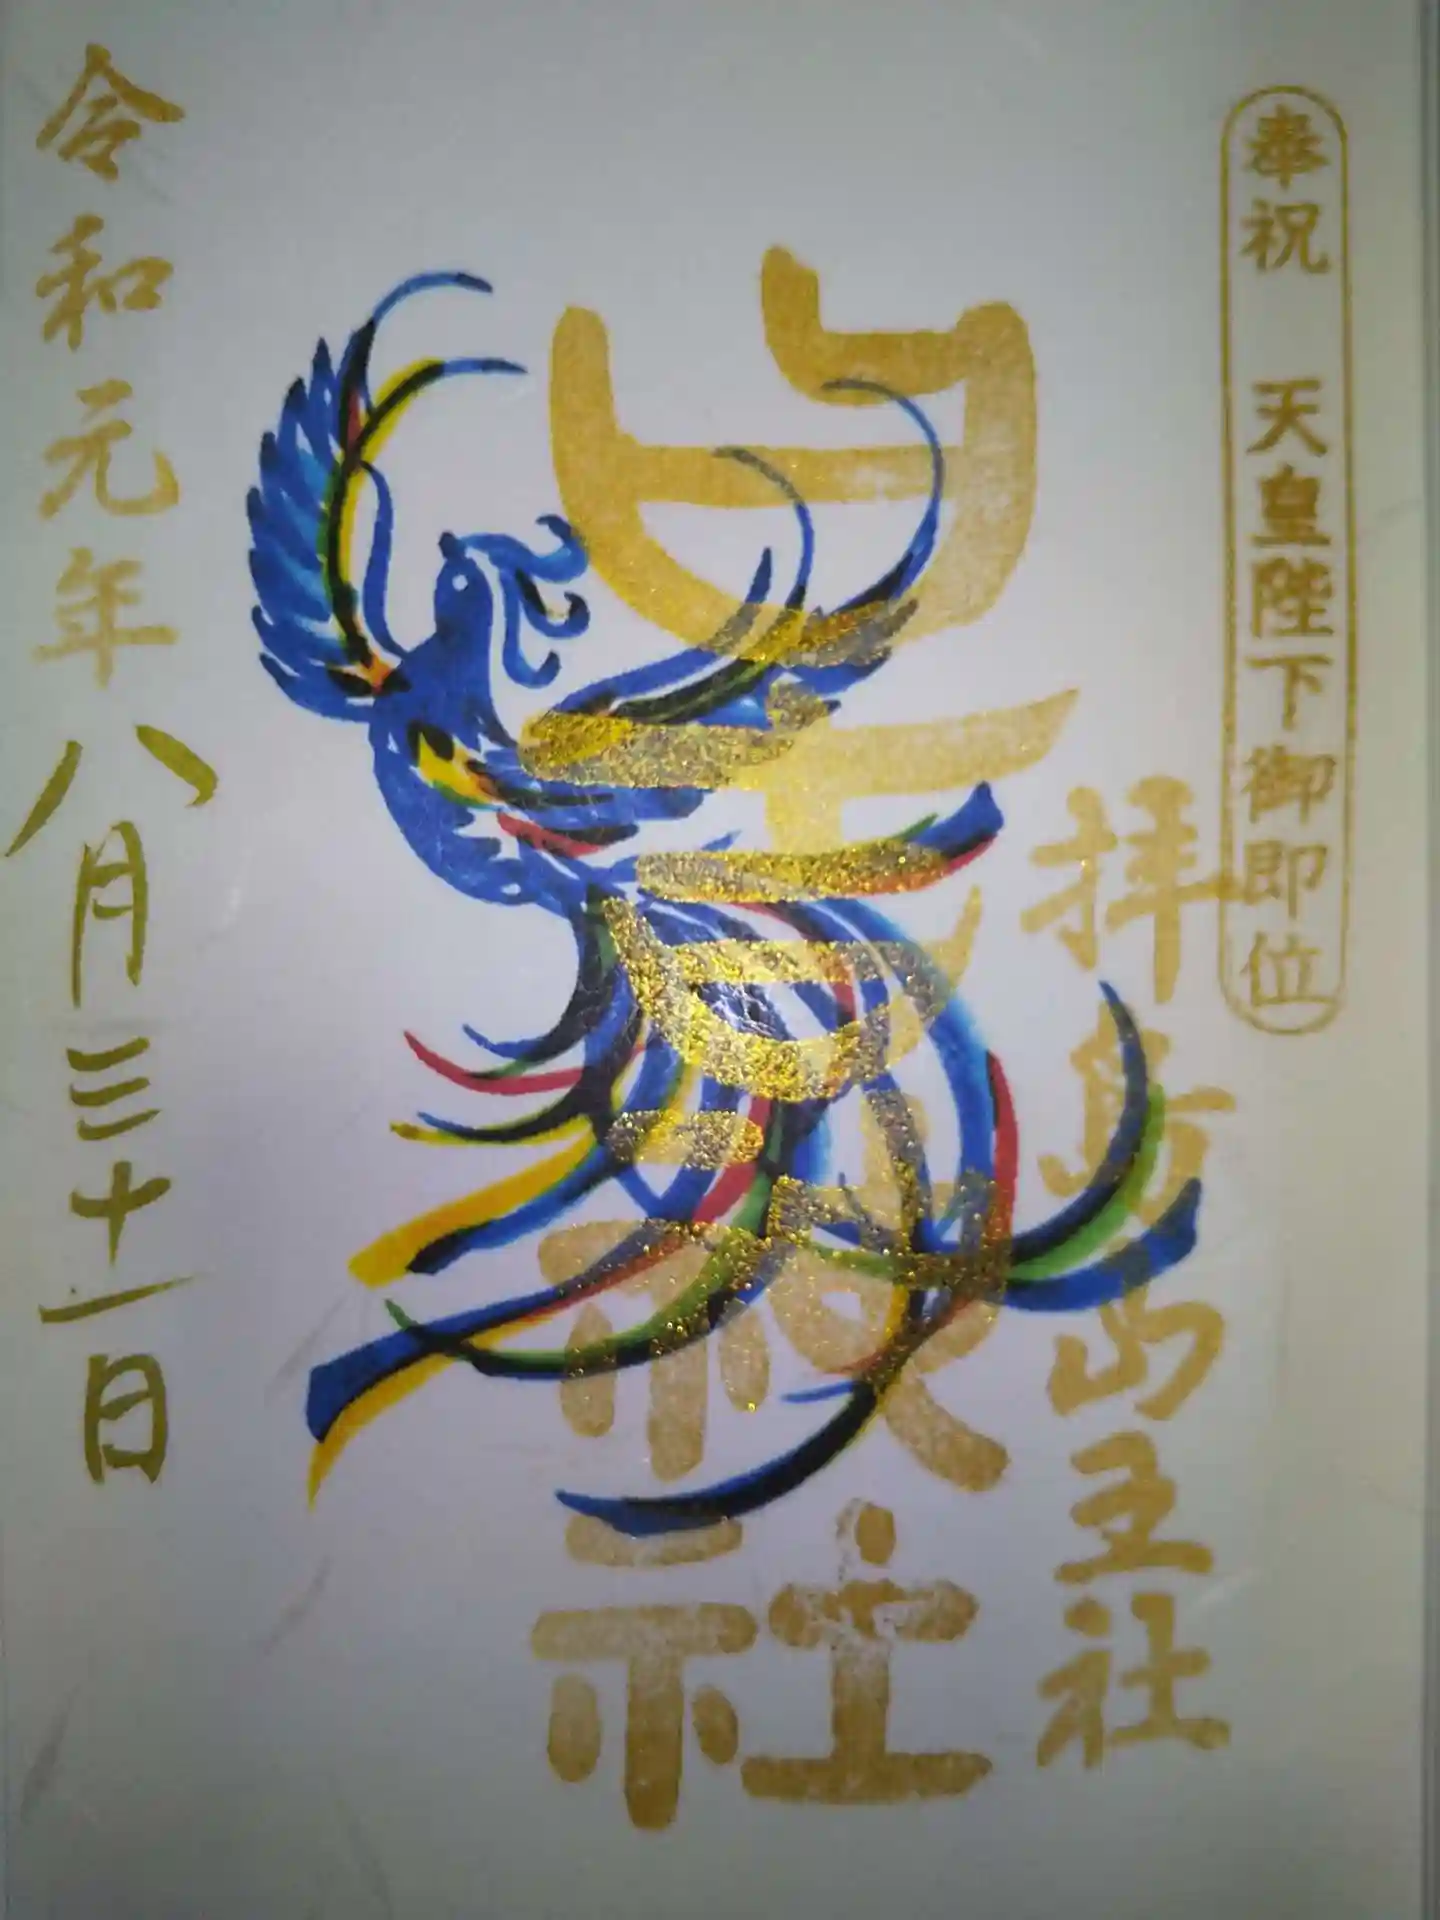 奉祝 天皇陛下御即位
拝島山王社
日吉神社
令和元年八月三十一日